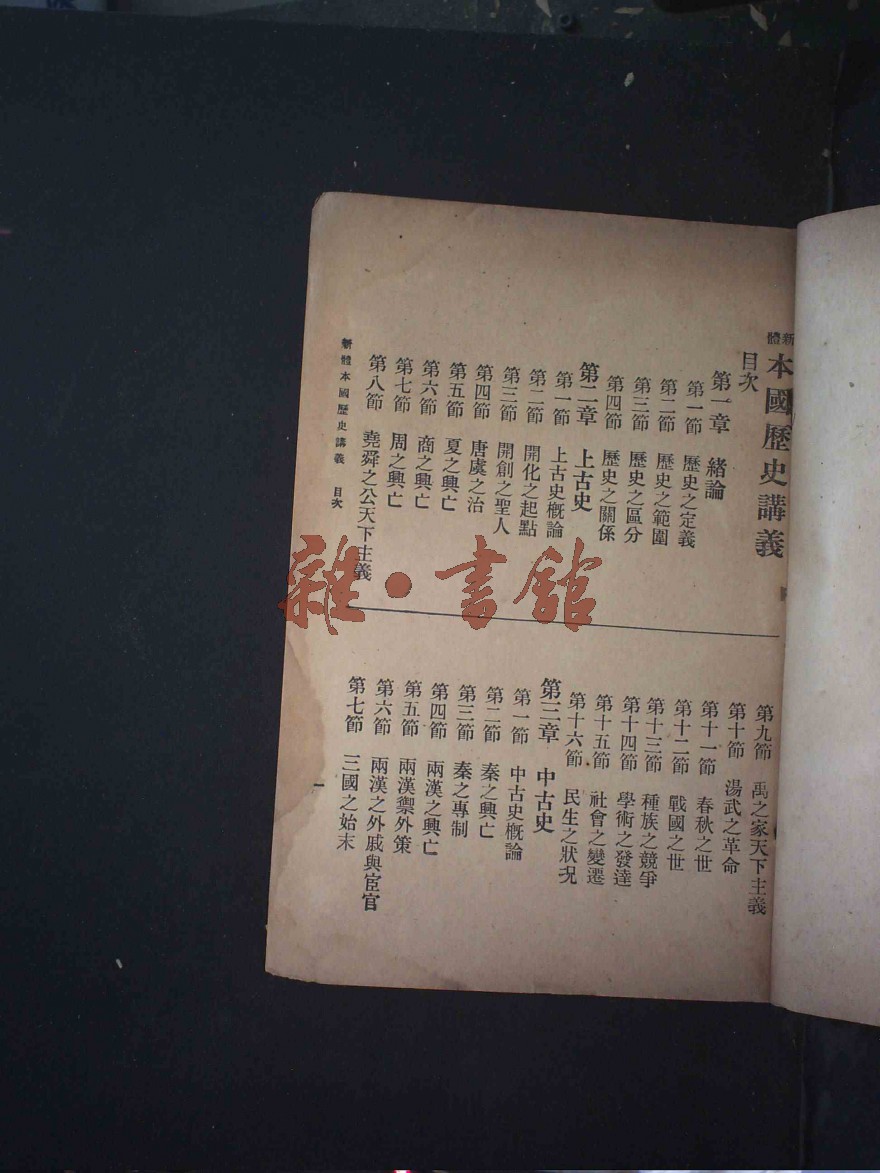 新體本國歷史講義
目次
第一章 緒論
第一節 歷史之定義
第二節 歷史之範圍
第三節 歷史之區分
第四節 歷史之關係
第二章 上古史
第一節 上古史概論
第二節 開化之起點
第三節 開創之聖人
第四節 唐虞之治
第五節 夏之興亡
第六節 商之興亡
第七節 周之興亡
第八節 堯舜之公天下主義
第九節 禹之家天下主義
第十節 湯武之革命
第十一節 春秋之世
第十二節 戰國之世
第十三節 種族之競爭
第十四節 學術之發達
第十五節 社會之變遷
第十六節 民生之狀況
第三章 中古史
第一節 中古史概論
第二節 秦之興亡
第三節 秦之專制
第四節 兩漢之興亡
第五節 兩漢禦外策
第六節 兩漢之外戚與宦官
第七節 三國之始末
新體本國歷史講義 目次
一
雜·書館